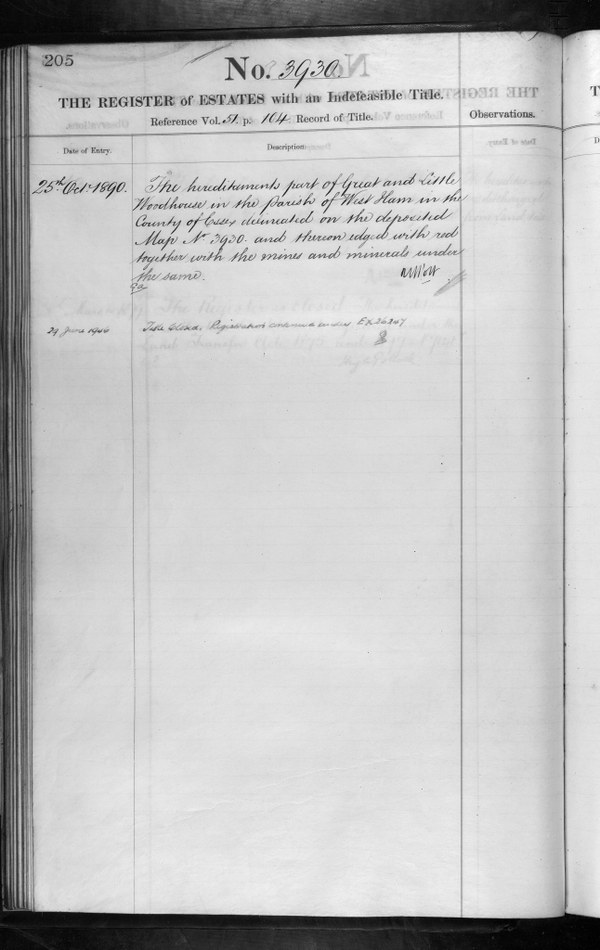 205
No. 3930.
THE REGISTER of ESTATES with an Indefeasible Title.
Reference Vol. 51. p. 104. Record of Title.
Observations.
Date of Entry.
Description.
25th Oct. 1890.
The hereditaments part of Great and Little
Woodhouse in the Parish of West Ham in the
County of Essex delineated on the deposited
Map No 3930. and thereon edged with red
together with the mines and minerals under
the same.
29 June
Title closed. Registration continued under EX26247